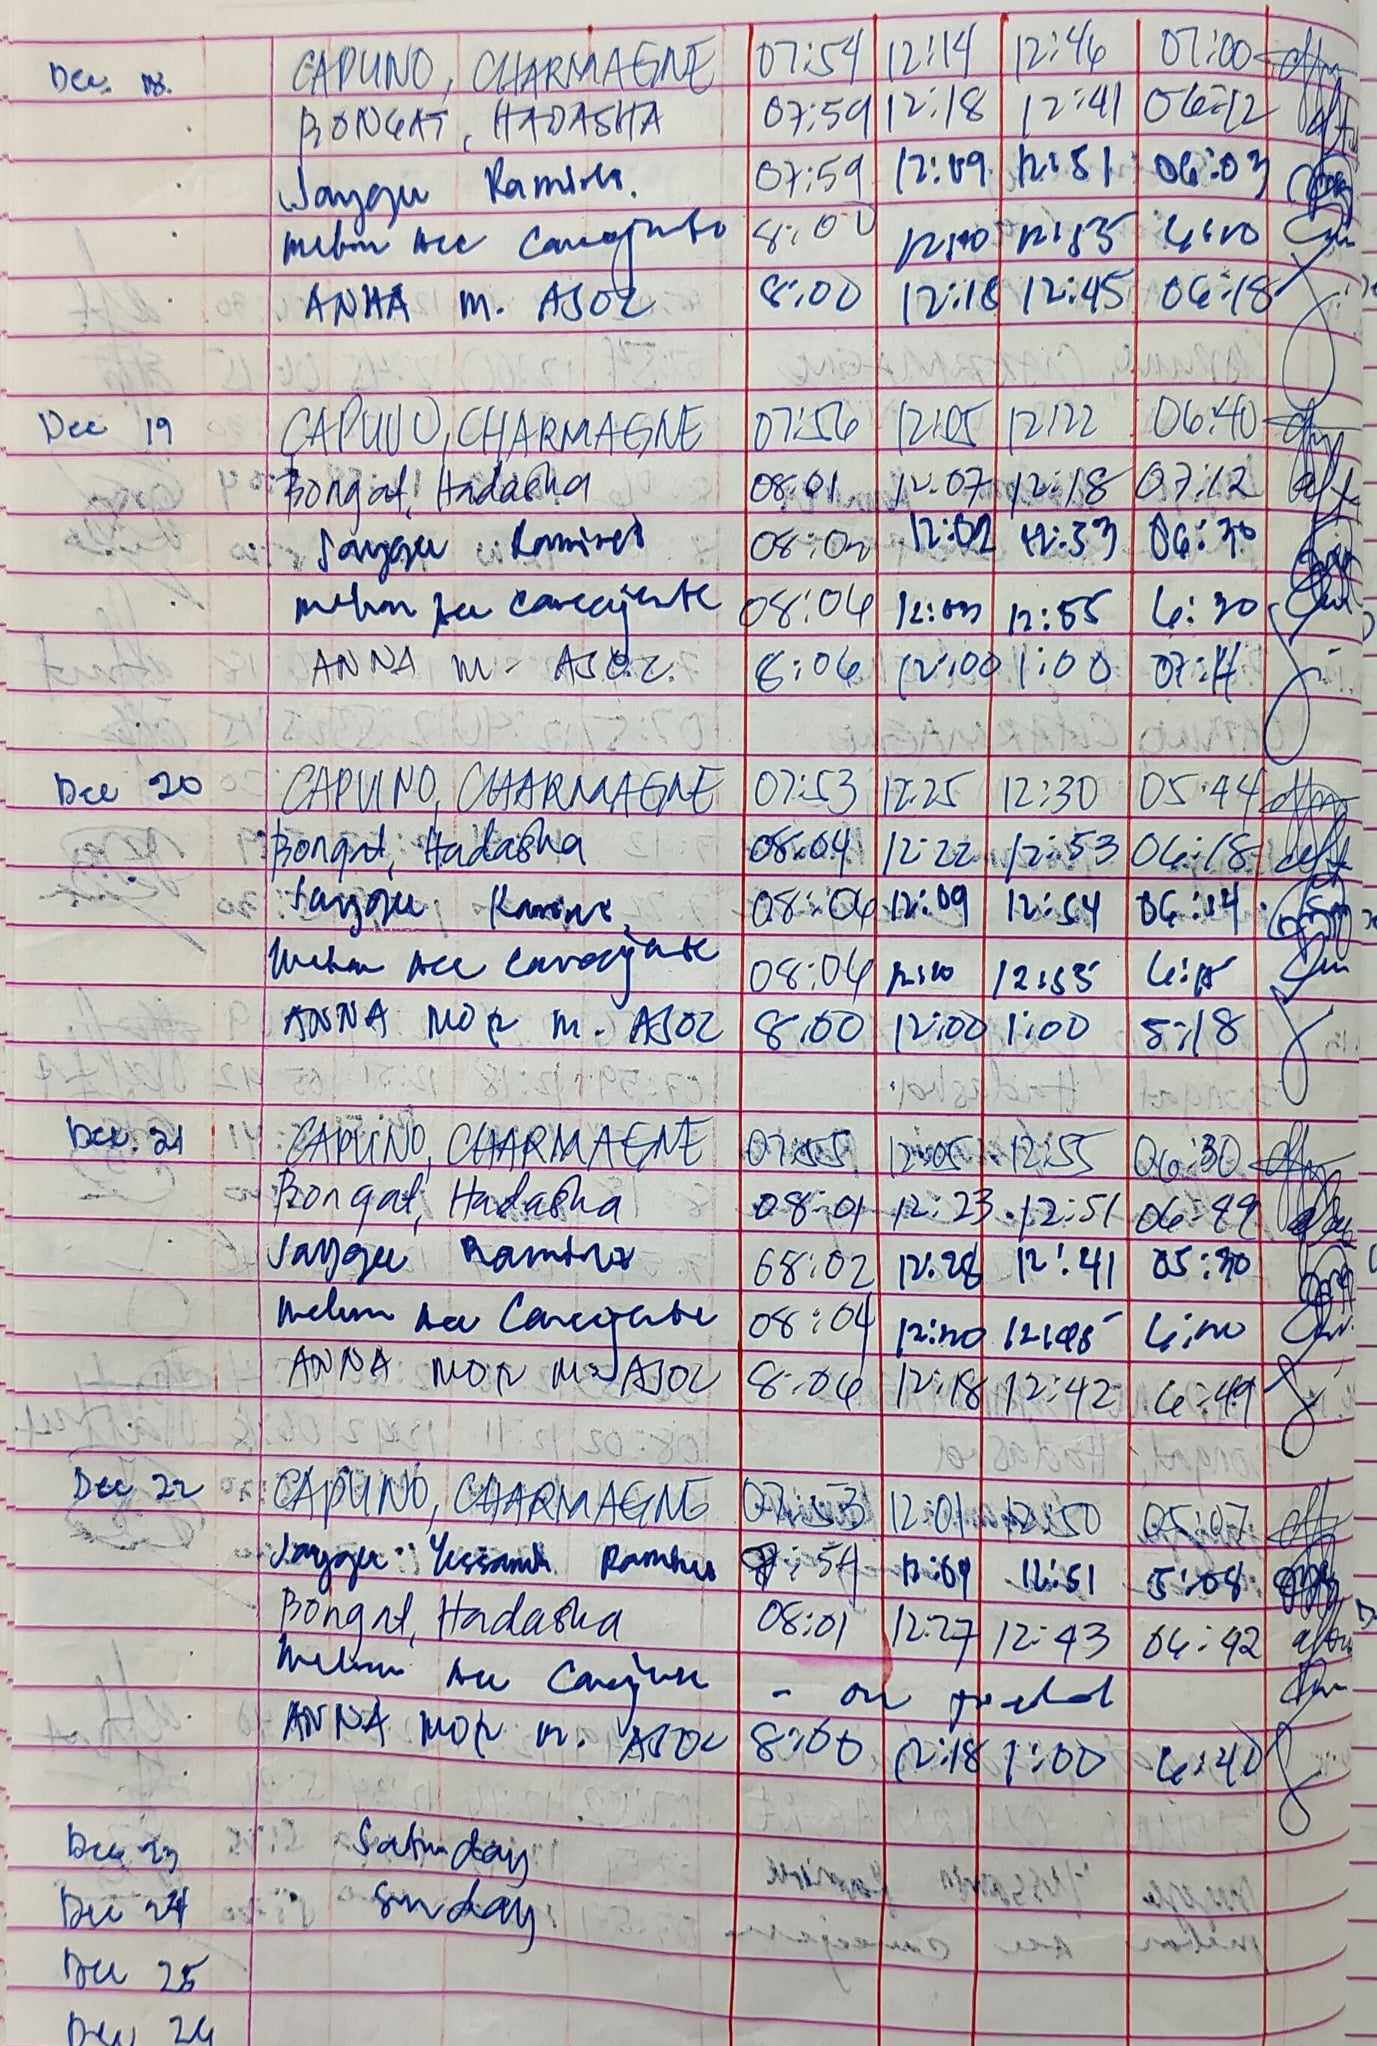 Dec. 18. CAPUNO, CHARMAGNE 07:54 12:14 12:46 07:00
BONGAT, HADASHA 07:59 12:18 12:41 06:12
Ramirez. 07:59 12:09 12:51 06:03
Ace 8:00 12:10 12:53 6:10
ANNA M. AJOC 8:00 12:18 12:45 06:18
Dec 19 CAPUNO, CHARMAGNE 07:56 12:05 12:22 06:40
Bongat, Hadasha 08:01 12:07 12:18 07:12
Ramirez 08:02 12:02 12:53 06:30
Ace 08:06 12:03 12:55 6:30
ANNA M. AJOC 8:06 12:00 1:00 07:14
Dec 20 CAPUNO, CHARMAGNE 07:53 12:25 12:30 05:44
Bongat, Hadasha 08:04 12:22 12:53 06:18
08:06 12:09 12:54 06:14
Ace 08:06 12:10 12:53 6:15
ANNA MOR M. AJOC 8:00 12:00 1:00 5:18
Dec. 21 CAPUNO, CHARMAGNE 07:55 12:05 12:55 06:30
Bongat, Hadasha 08:01 12:23 12:51 06:49
Ramirez 08:02 12:28 12:41 05:30
Ace 08:04 12:20 6:20
ANNA MOR M. AJOC 8:06 12:18 12:42 6:49
Dec 22 CAPUNO, CHARMAGNE 07:53 12:01 12:50 05:07
Yessamin Ramirez 7:54 12:09 12:51 5:08
Bongat, Hadasha 08:01 12:27 12:43 06:42
Ace - on
ANNA MOR M. AJOC 8:00 12:18 1:00 6:40
Dec 23 Saturday
Dec 24 Sunday
Dec 25
Dec 26